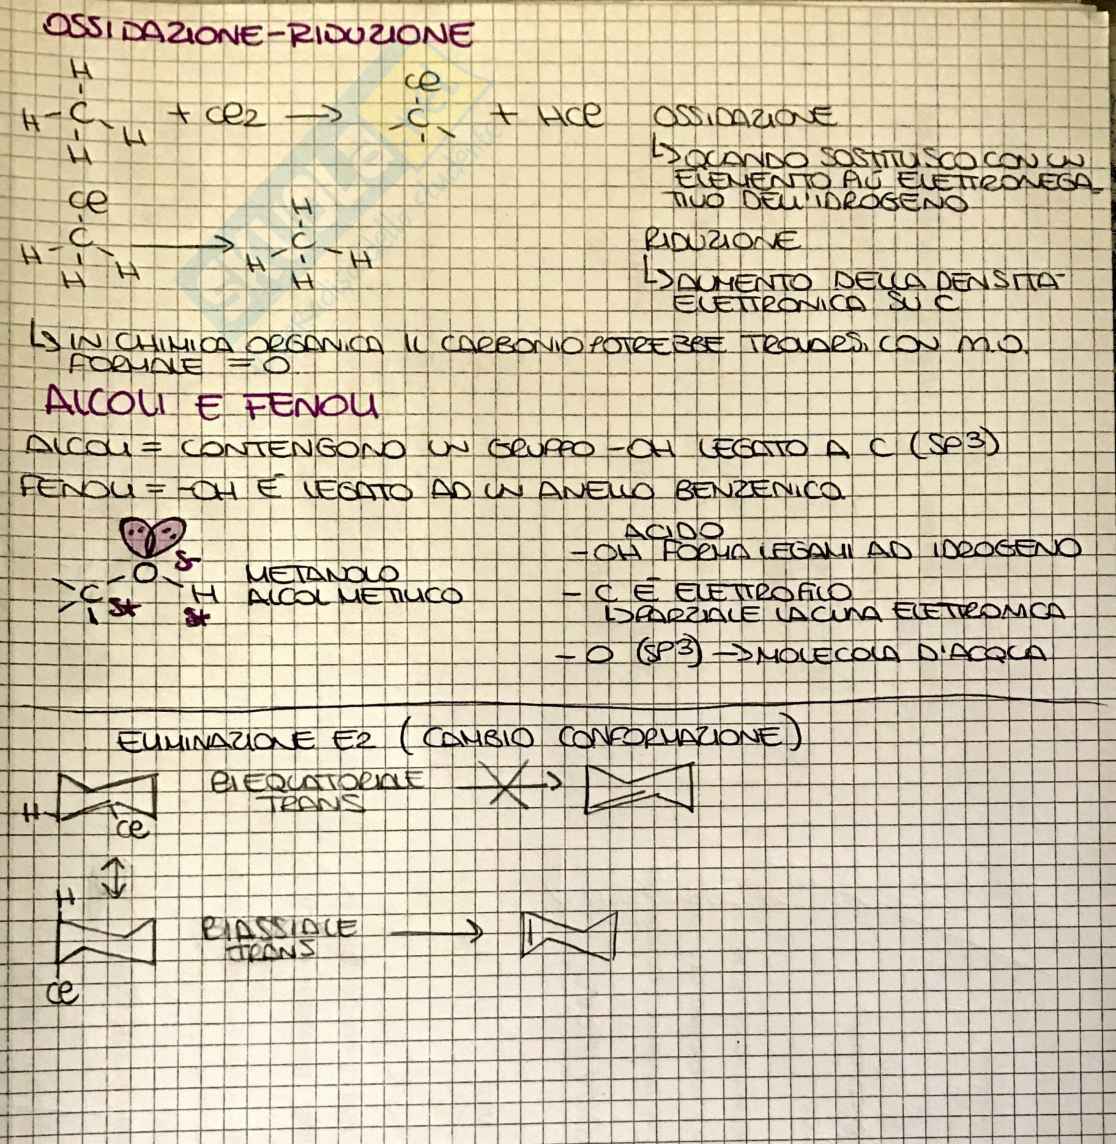 OSSIDAZIONE-RIDUZIONE
H
H-C-H + Cl2 → Cl C + HCl OSSIDAZIONE
H
↳ QUANDO SOSTITUISCO CON UN
ELEMENTO PIÙ ELETTRONEGA-
TIVO DELL'IDROGENO
Cl H
H-C-H → H-C-H RIDUZIONE
H H
↳ AUMENTO DELLA DENSITA'
ELETTRONICA SU C
↳ IN CHIMICA ORGANICA IL CARBONIO POTREBBE TROVARSI CON M.O.
FORMALE = 0.
ALCOLI E FENOLI
ALCOLI = CONTENGONO UN GRUPPO -OH LEGATO A C (SP3)
FENOLI = -OH È LEGATO AD UN ANELLO BENZENICO
ACIDO
-OH FORMA LEGAMI AD IDROGENO
δ-
O METANOLO
C δ+ H δ+ ALCOL METILICO
- C È ELETTROFILO
↳ PARZIALE LACUNA ELETTRONICA
- O (SP3) → MOLECOLA D'ACQUA
ELIMINAZIONE E2 (CAMBIO CONFORMAZIONE)
BIEQUATORIALE
TRANS
H
Cl
H
BIASSIALE
TRANS
Cl